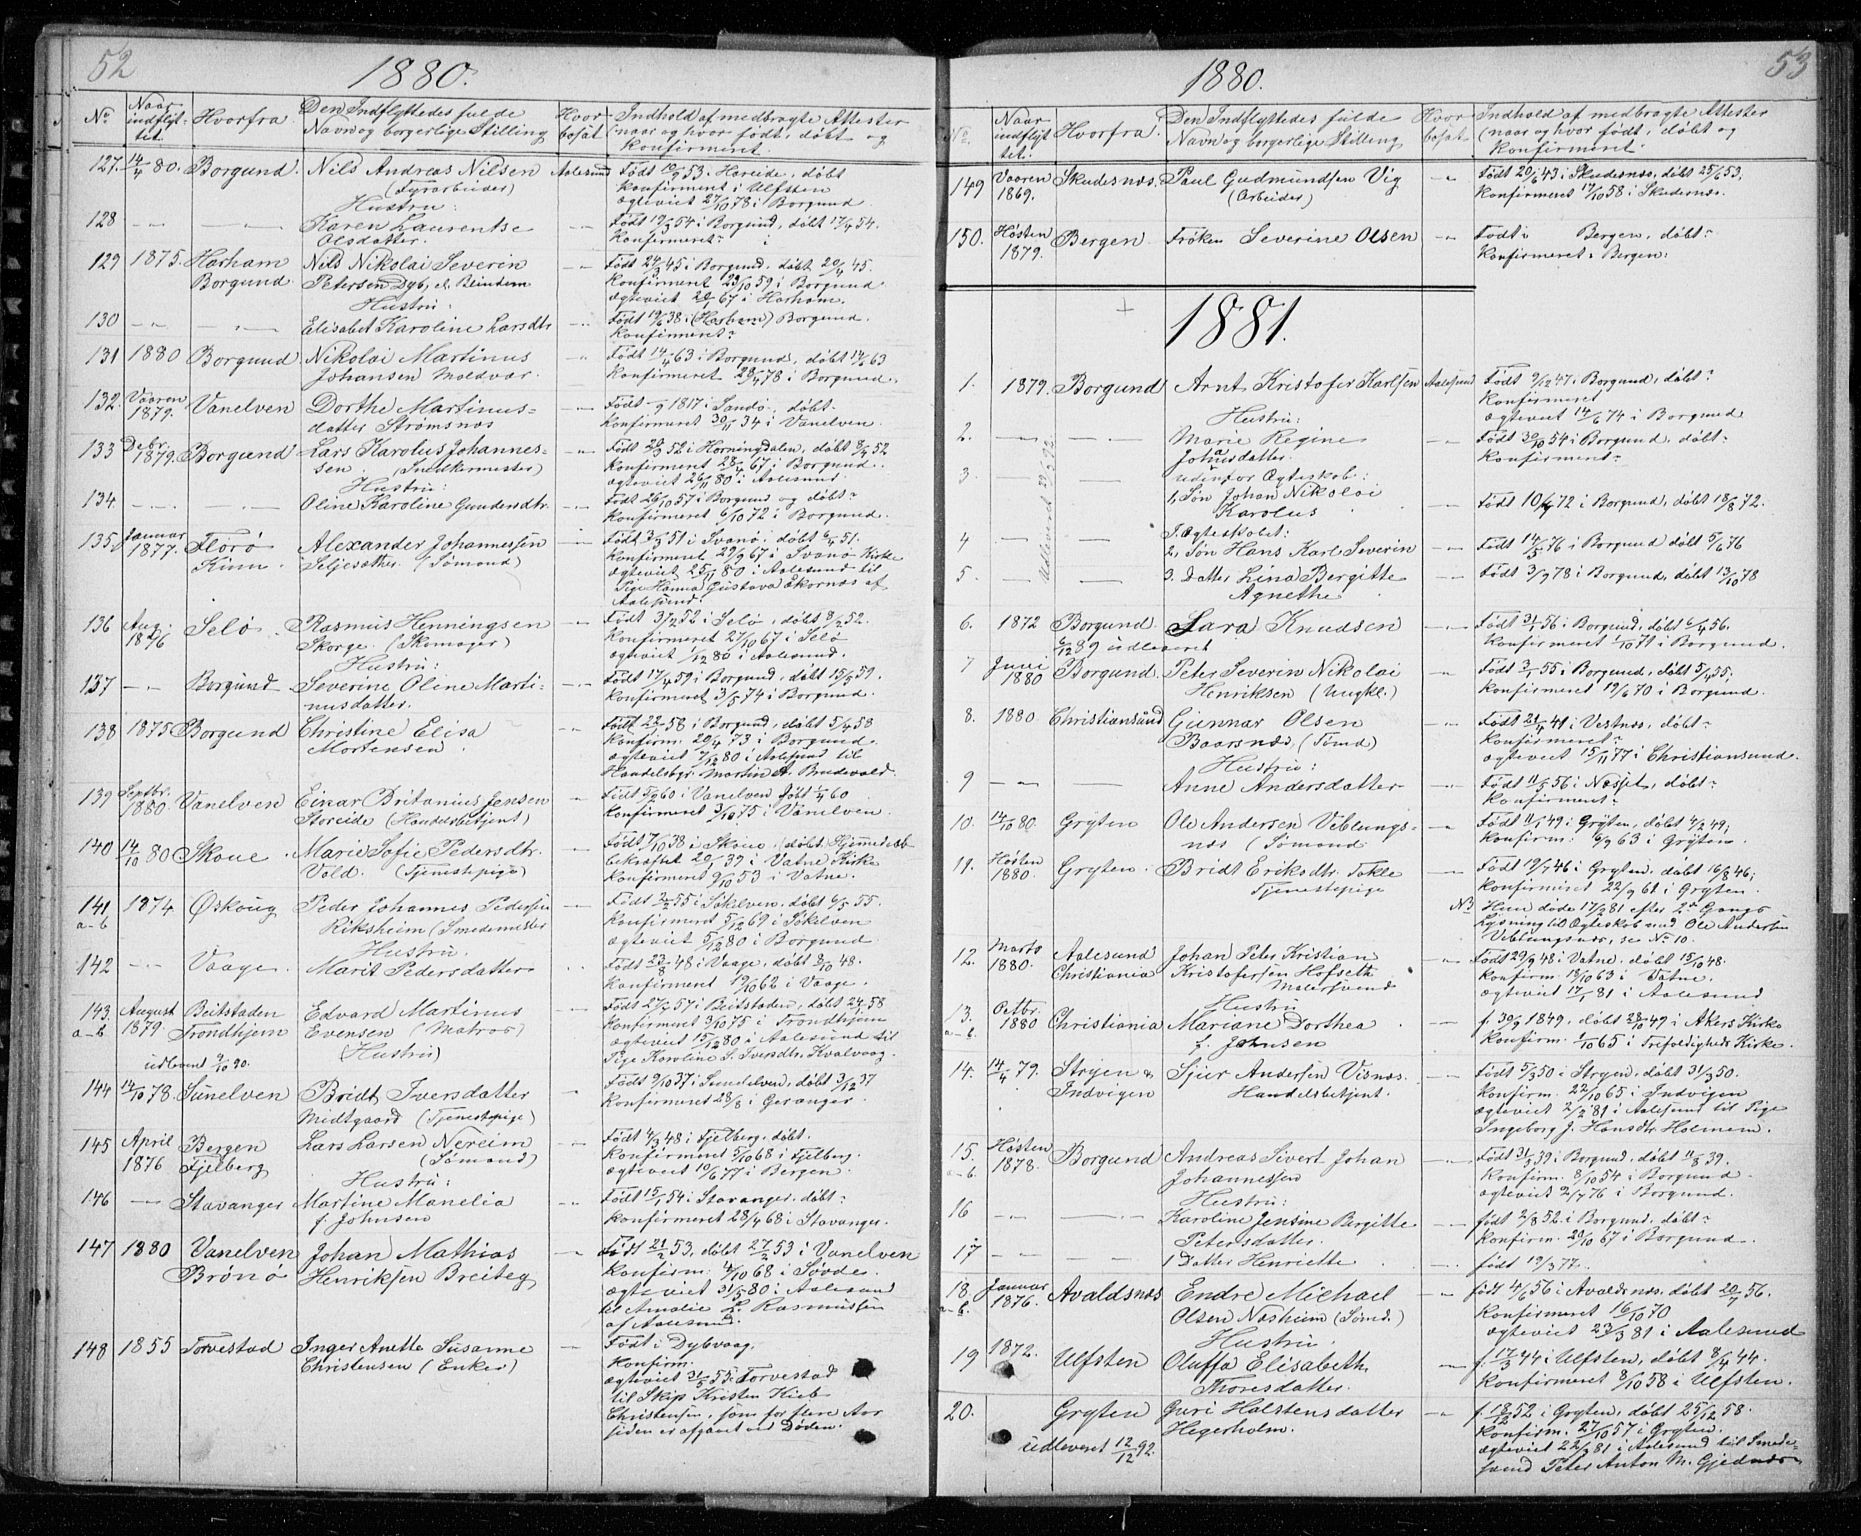 52
1880.
No
Naar indflyttet.
Hvorfra
Den Indflyttedes fulde Navn og borgerlige Stilling
Hvor bosat
Indhold af medbragte Attester (naar og hvor født, døbt og konfirmeret.
127. 14/4 80. Borgund. Nils Andreas Nilsen Aalesund Født 10/9 53. Hareide, døbt
(Fyrarbeider) konfirment i Ulfsten
Hustru: ægteviet 27/10 78 i Borgund.
128 Karen Laurentse Født 19/3 54 i Borgund, døbt 17/4 54.
Olsdatter. Konfirmeret:
129 1875. Harham Nils Nikolai Severin Født 24/3 45 i Borgund, døbt 20/4 45.
Borgund Petersen Dyb, Konfirmeret 23/10 59 i Borgund
Hustru: ægteviet 67 i Harham.
130 Elisabet Karoline Larsdtr Født 19/6 38 i (Harham) Borgund.
Konfirmeret:
131 1880 Borgund Nikolai Martinus Født 14/4 63 i Borgund, døbt 63
Johansen Moldvær. Konfirmeret 28/4 78 i Borgund.
132. Vaaren 1879. Vanelven Dorthe Martinus- Født 1817 i Sandø, døbt.
datter Strømsnæs Konfirmeret 34 i Vanelven.
133 Debr. 1879. Borgund Lars Karolus Johannes- Født 20/3 52 i Horningdalen, døbt 8/4 52
sen. (Snedkermester) Konfirmeret 28/4 67 i Borgund.
Hustru: ægteviet 26/11 80 i Aalesund.
134. Oline Karoline Gundersdtr. Født 26/10 57 i Borgund og døbt:
Konfirmeret 6/10 72 i Borgund.
135. Januar 1877. Florø Alexander Johannessen Født 3/3 51 i Svanø, døbt 6/4 51.
Kinn. Seljesæther. (Sømand) Konfirmeret 29/9 67 i Svanø Kirke
ægteviet 25/11 80 i Aalesund til
Pige Hanna Gustava Ekornæs af
Aalesund.
136 Aug: 1876 Selø. Rasmus Henningsen Født 3/2 52 i Selø, døbt 8/2 52.
Skorge. (Skomager) Konfirmeret 27/10 67 i Selø
Hustru: ægteviet 1/12 80 i Aalesund.
137 Borgund Severine Oline Marti- Født 17/4 59 i Borgund, døbt 15/5 59.
nusdatter. Konfirmeret 3/5 74 i Borgund.
138 1875 Borgund Christine Elisa Født 22/1 58 i Borgund, døbt 5/4 58
Mortensen. Konfirm. 20/4 73 i Borgund
ægteviet 7/12 80 i Aalesund til
Handelsbgr. Martin A. Brudevold.
139 Septbr. 1880 Vanelven Einar Britanius Jensen Født 5/2 60 i Vanelven døbt 1/4 60
Storeide (Handelsbetjent) konfirmeret 3/10 75 i Vanelven.
140 14/10 80 Skoue. Marie Sofie Pedersdtr. Født 7/10 38 i Skoue, (døbt. Hjemmedaab
Vold. (Tjenestepige) bekræftet 20/1 39 i Vatne Kirke
Konfirmeret 9/10 53 i Vatne.
141 a-b 1874 Øskoug Peder Johannes Pedersen Født 2/2 55 i Søkelven, døbt 6/5 55.
Riksheim (Smedemester Konfirmeret 5/12 69 i Søkelven
Hustru. ægteviet 5/12 80 i Borgund
142 Vaage. Marit Pedersdatter Født 23/8 48 i Vaage, døbt 8/10 48.
Konfirmeret 9/10 62 i Vaage.
143. a-b August 1879. Beitstaden Edvard Martinus Født 27/2 57 i Beitstaden, døbt 24 58
Trondhjem Evensen (Matros) Konfirmeret 3/10 75 i Trondhjem
udløvent 9/10 90. (Hustru) ægteviet 15/12 80 i Aalesund til
Pige Karoline S. Iversdtr. Kvalvaag.
144 14/10 78. Sunelven Bridt Iversdatter Født 9/10 37 i Sunelven, døbt 3/12 37
Midtgaard (Tjenestepige) Konfirmeret 28/8 i Geranger.
145 April 1876 Bergen Lars Larsen Nereim Født 4/3 48 i Fjelberg, døbt.
Fjelberg (Sømand) Konfirmeret 5/10 68 i Fjelberg.
Hustru: ægteviet 10/6 77 i Bergen.
146 Stavanger Martine Manelia Født 15/1 54 i Stavanger. døbt:
f. Johnsen konfirmeret 28/4 68 i Stavanger.
147 1880 Vanelven Johan Mathias Født 21/2 53, døbt 27/2 53 i Vanelven
Brønø Henriksen Breiteg Konfirm. 4/10 68 i Søvde.
ægteviet 31/5 80 i Aalesund
til Amalie Rasmussen
af Aalesund.
148 1855 Torvestad Inger Anette Susanne Født i Dybvaag.
Christensen (Enke) Konfirm.
ægteviet 31/5 55 i Torvestad
til Skip. Kristen Hieb
Christensen, som for flere Aar
siden er afgaaet ved Døden.
53
1880.
No.
Naar indflyttet.
Hvorfra.
Den Indflyttedes fulde Navn og borgerlige Stilling
Hvor bosat.
Indhold af medbragte Attester (naar og hvor født, døbt og Konfirmeret.
149 Vaaren 1869. Skudesnæs. Paul Gudmundsen Vig Født 20/6 43 i Skudesnæs, døbt 25/6 53,
(Arbeider) Konfirmeret 17/10 58 i Skudesnæs.
150. Høsten 1879. Bergen Frøken Severine Olsen Født i Bergen, døbt:
Konfirmeret i Bergen:
1881.
1. 1879. Borgund Arnt Kristofer Karlsen Aalesund Født 9/12 47 i Borgund, døbt:
Konfirmeret
Hustru: ægteviet 14/6 74 i Borgund
2. Marie Regine Født 30/10 54 i Borgund, døbt:
Johnsdatter. Konfirmeret:
3 udenfor Ægteskab:
1, Søn Johan Nikolai Født 10/7 72 i Borgund, døbt 18/8 72.
Karolus
I Ægteskabet:
4 2, Søn Hans Karl Severin Født 14/5 76 i Borgund døbt 5/6 76
5. 3. Datter Lina Bergitte Født 3/9 78 i Borgund, døbt 13/10 78
Agnethe
Udleveret 22/5 92
6. 1872 Borgund Lara Knudsen Født 3/1 56 i Borgund, døbt 6/4 56.
6/12 89 udleveret Konfirmeret 1/10 71 i Borgund.
7 Juni 1880 Borgund. Peter Severin Nikolai Født 3/1 55 i Borgund, døbt 5/4 55,
Henriksen (Ungkl.) Konfirmeret 19/6 70 i Borgund.
8. 1880. Christiansund Gunnar Olsen Født 21/4 41 i Vestnæs, døbt:
Baarsnæs, (Sømd) Konfirmeret:
Hustru: ægteviet 15/11 77 i Christiansund.
9 Anne Andersdatter Født 11/5 56 i Næsset, døbt:
Konfirmeret:
10. 14/10 80. Gryten Ole Andersen Veblungs- Født 11/1 49 i Gryten, døbt 4/2 49;
næs (Sømand Konfirm: 6/9 63 i Gryten.
11. Høsten 1880. Gryten. Bridt Eriksdtr. Tokle Født 19/7 46 i Gryten, døbt 16/8 46;
Tjenestepige Konfirmeret 22/9 61 i Gryten.
NB Hun døde 17/2 81 efter 2den Gangs
Lysning til Ægteskab med Ole Andersen
Veblungsnæs, se No 10.
12. Marts 1880. Aalesund Johan Peter Kristian Født 29/9 48 i Vatne, døbt 15/10 48.
Christiania Kristofersen Hofseth Konfirm. 18/10 63 i Vatne.
Malersvend ægteviet 17/1 81 i Aalesund
13. a-b. Octbr. 1880 Christiania Hustru
Mariane Dorthea f. 30/9 1849, døbt 28/10 49 i Akers Kirke
f. Johnsen Konfirm. 1/10 65 i Trefoldigheds Kirke.
14. 14/4 79. Stryen & Sjur Andersen Visnæs. Født 5/3 50 i Stryen, døbt 31/3 50.
Indvigen Handelsbetjent. Konfirm. 22/10 65 i Indvigen
ægteviet 2/2 81 i Aalesund til Pige
Ingeborg J. Hansdtr Holmem.
15. a-b. Høsten 1878. Borgund Andreas Sivert Johan Født 31/3 39 i Borgund, døbt 11/8 39.
Johannessen Konfirm. 8/10 54 i Borgund
Hustru: ægteviet 2/7 76 i Borgund.
16 Karoline Jensine Bergitte født 2/8 52 i Borgund, døbt:
Petersdatter. Konfirm. 20/10 67 i Borgund.
17 1 Datter Henriette født 12/3 77.
18. a-b. Januar 1876. Avaldsnæs Endre Michael født 4/6 56 i Avaldsnæs, døbt 20/7 56.
Olsen Næsheim (Sømd.) Konfirmeret 16/10 70
Hustru ægteviet 23/3 81 i Aalesund
19 1872. Ulfsten Oluffa Elisabeth f. 17/3 44 i Ulfsten, døbt 8/4 44.
Thoresdatter. Konfirmeret 8/10 58 i Ulfsten.
20. Gryten Guri Halstensdatter f. 18/12 52 i Gryten, døbt 25/12 58.
udleveret 12/12 92. Hegerholm. Konfirm. 27/10 57 i Gryten.
ægteviet 22/3 81 i Aalesund til Smede-
svend Peter Anton M. Gjednæs